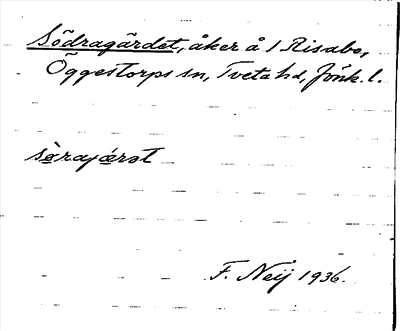 Södragärdet, åker å 1 Risabo,
Öggestorps sn, Tveta hd, Jönk. l.
F. Neij 1936.